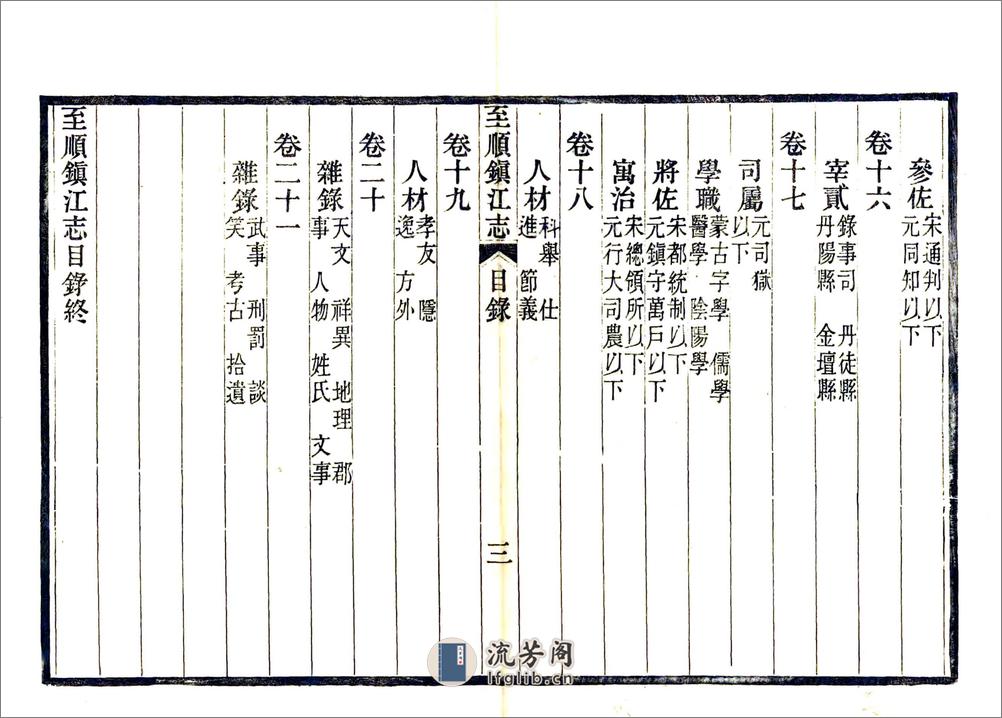 參佐宋通判以下元同知以下
卷十六
宰貳錄事司 丹徒縣丹陽縣 金壇縣
卷十七
司屬元司獄以下
學職蒙古字學 儒學醫學 陰陽學
將佐宋都統制以下元鎮守萬戶以下
寓治宋總領所以下元行大司農以下
卷十八
人材科舉 仕進 節義
至順鎮江志 目錄 三
卷十九
人材孝友 隱逸 方外
卷二十
雜錄天文 祥異 地理 郡事 人物 姓氏 文事
卷二十一
雜錄武事 刑罰 談笑 考古 拾遺
至順鎮江志目錄終
流芳阁
lfglib.cn